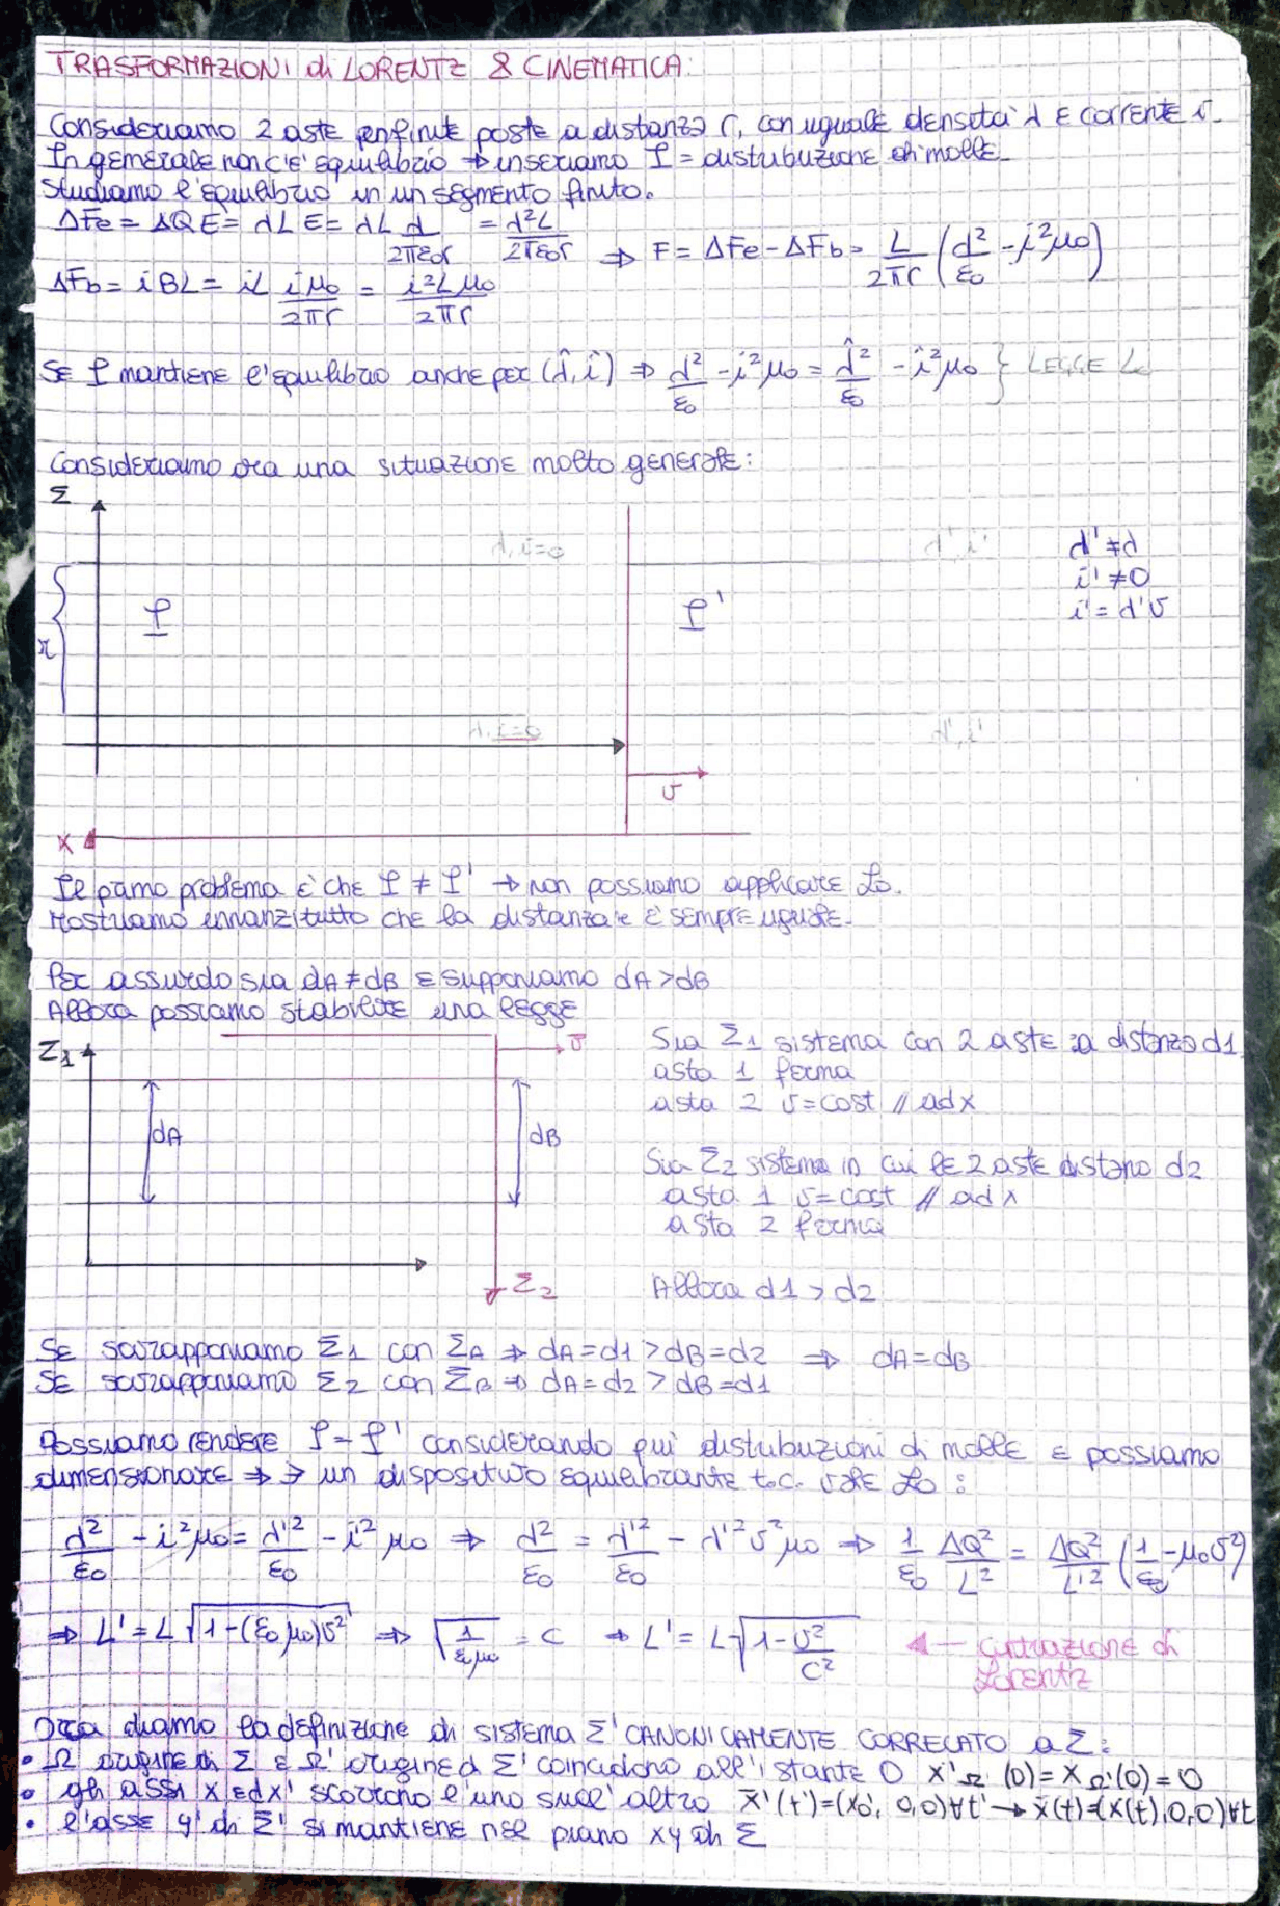 TRASFORMAZIONI di LORENTZ & CINEMATICA:
Consideriamo 2 aste infinite poste a distanza r, con uguale densità λ E corrente i.
In generale non c'è equilibrio → inseriamo f = distribuzione di molle.
Studiamo l'equilibrio in un segmento finito.
ΔFe = ΔQ E = λL E = λL λ/2πε0r = λ²L/2πε0r ⇒ F = ΔFe - ΔFb = L/2πr (λ²/ε0 - i²μ0)
ΔFb = i BL = iL iμ0/2πr = i²Lμ0/2πr
Se f mantiene l'equilibrio anche per (λ̂, î) ⇒ λ²/ε0 - i²μ0 = λ̂²/ε0 - î²μ0 } LEGGE L0
Consideriamo ora una situazione molto generale:
Σ
λ, i=0
λ', i'
λ' ≠ λ
i' ≠ 0
i' = λ'v
f
f'
r
λ, i=0
λ', i'
v
x
Il primo problema è che f ≠ f' → non possiamo applicare L0.
Mostriamo innanzitutto che la distanza r è sempre uguale.
Per assurdo sia dA ≠ dB E supponiamo dA > dB
Allora possiamo stabilire una legge
Σ1
v
dA
dB
Σ2
Sia Σ1 sistema con 2 aste a distanza d1
asta 1 ferma
asta 2 v=cost // ad x
Sia Σ2 sistema in cui le 2 aste distano d2
asta 1 v=cost // ad x
asta 2 ferma
Allora d1 > d2
Se sovrapponiamo Σ1 con ΣA ⇒ dA = d1 > dB = d2 ⇒ dA = dB
Se sovrapponiamo Σ2 con ΣB ⇒ dA = d2 > dB = d1
Possiamo rendere f = f' considerando qui distribuzioni di molle E possiamo
dimensionare ⇒ ∃ un dispositivo equilibrante t.c. vale L0:
λ²/ε0 - i²μ0 = λ'²/ε0 - i'²μ0 ⇒ λ²/ε0 = λ'²/ε0 - λ'²v²μ0 ⇒ 1/ε0 ΔQ²/L² = ΔQ²/L'² (1/ε0 - μ0v²)
⇒ L' = L √1-(ε0μ0)v² ⇒ √1/ε0μ0 = c → L' = L √1-v²/c² ← contrazione di
Lorentz
Ora diamo la definizione di sistema Σ' CANONICAMENTE CORRELATO a Σ:
• Ω origine di Σ E Ω' origine di Σ' coincidono all'istante 0 x'Ω (0) = xΩ'(0) = 0
• gli assi x ed x' scorrono l'uno sull'altro x̄'(t') = (x0', 0,0)∀t' → x̄(t) = (x(t),0,0)∀t
• l'asse y' di Σ' si mantiene nel piano xy di Σ